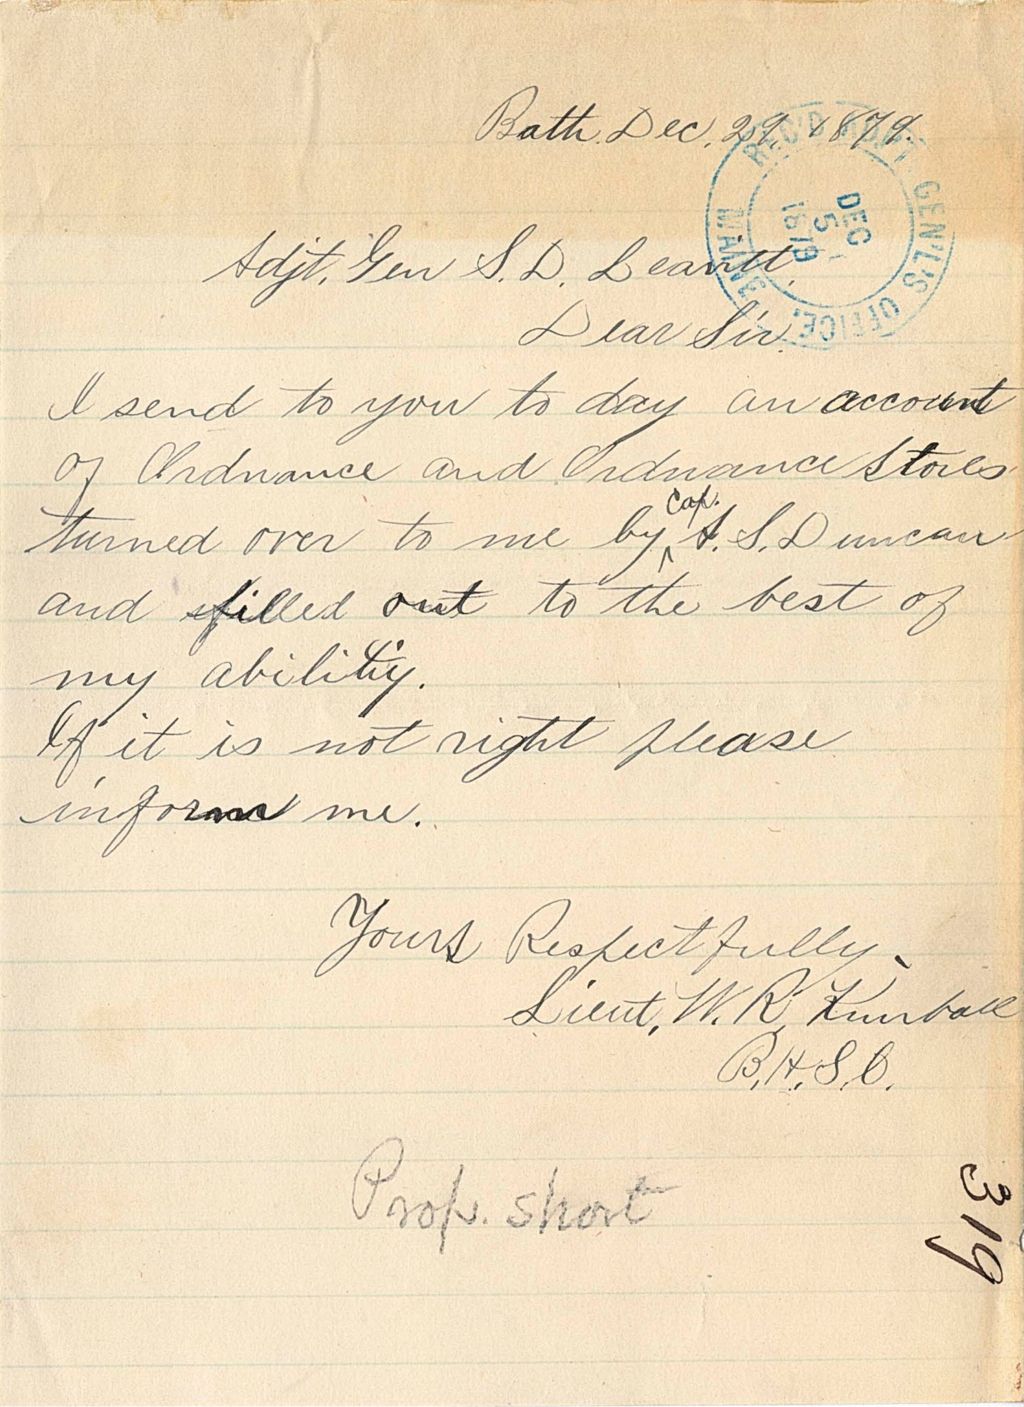 Bath. Dec. 29, 1879.
REC'D ADJT. GEN'L'S OFFICE.
MAINE
DEC
5
1879
Adjt. Gen S. D. Leavitt.
Dear Sir.
I send to you to day an account
of Ordnance and Ordnance Stores
turned over to me by Cap. S. S. Duncan
and filled out to the best of
my ability.
If it is not right please
inform me.
Yours Respectfully,
Lieut, W. R. Kimball
B. H. S. C.
Prop. short
319